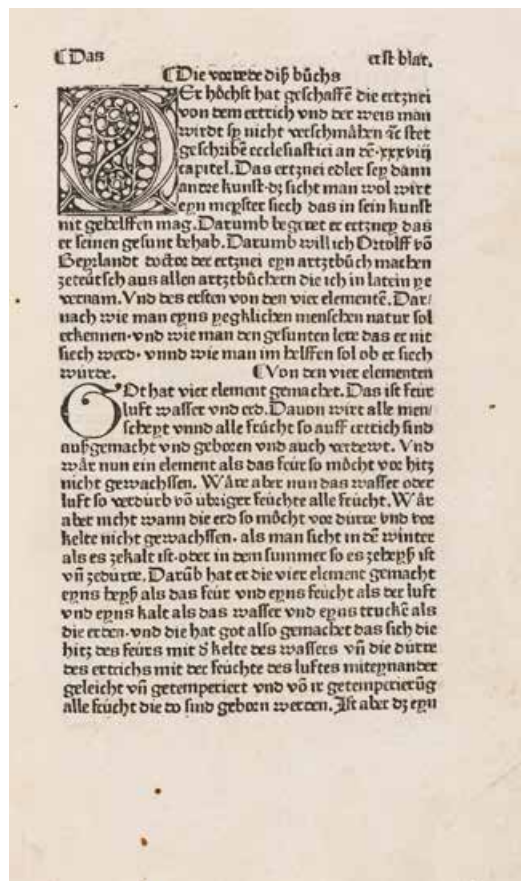 ⸿Das erst blat.
⸿Die vorrede diß bůchs
DEr höchst hat geschaffẽ die ertznei
von dem ertrich vnd der weis man
wirdt sy nicht verschmåhen Als stet
geschribẽ ecclesiastici an dẽ·xxxviij
capitel. Das ertznei edler sey dann
andre kunst·dz sicht man wol wirt
eyn meyster siech das in sein kunst
nit gehelffen mag. Darumb begeret er ertzney das
er seinen gesunt behab. Darumb will ich Ortolff võ
Beyrlandt doctor der ertznei eyn artztbůch machen
zeteütsch aus allen artztbůchern die ich in latein ye
vernam. Vnd des ersten von den vier elementẽ. Dar/
nach wie man eyns yegklichen menschen natur sol
erkennen·vnd wie man den gesunten lere das er nit
siech werd·vnnd wie man im helffen sol ob er siech
würde. ⸿Von den vier elementen
GOt hat vier element gemachet. Das ist feür
luft wasser vnd erd. Dauon wirt alle men/
scheyt vnnd alle frücht so auff ertrich sind
außgemacht vnd geboren vnd auch verdewt. Vnd
wår nun ein element als das feür so möcht vor hitz
nicht gewachssen. Wåre aber nun das wasser oder
luft so verdürb võ übriger feüchte alle frücht. Wår
aber nicht wann die erd so möcht vor dürre vnd vor
kelte nicht gewachssen·als man sicht in dẽ winter
als es zekalt ist·oder in dem summer so es zeheyß ist
vñ zedürre. Darũb hat er die vier element gemacht
eyns heyß als das feür vnd eyns feücht als der luft
vnd eyns kalt als das wasser vnd eyns truckẽ als
die erden·vnd die hat got also gemachet das sich die
hitz des feürs mit d̕ kelte des wassers vñ die dürre
des ertrichs mit der feüchte des luftes miteynander
geleicht vñ getemperiert vnd võ ir getemperierũg
alle frücht die do sind geborn werden. Ist aber dz eyn